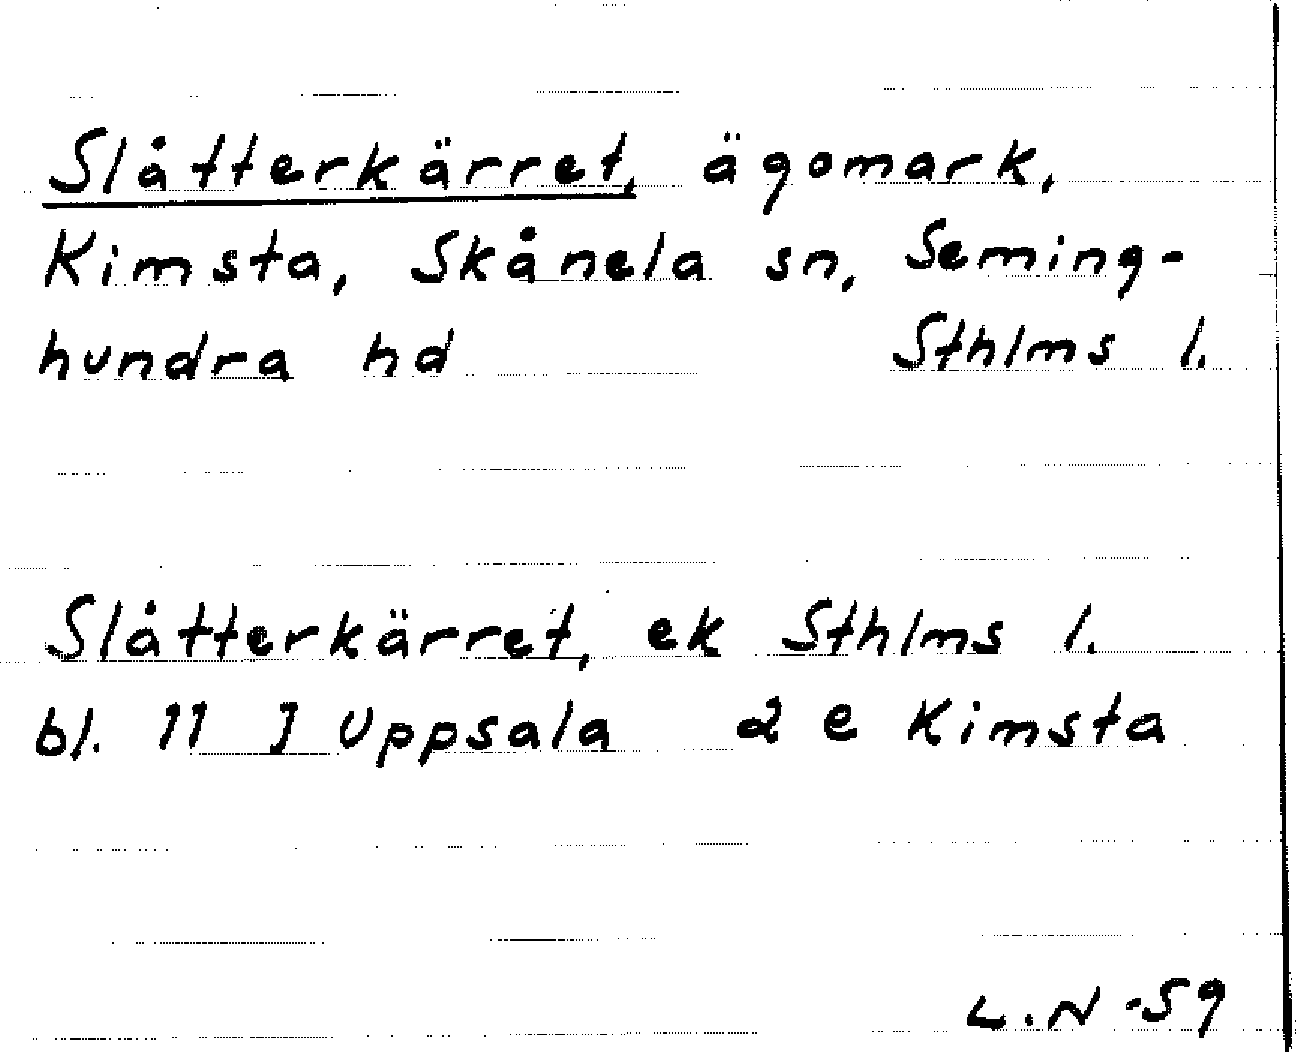 Slåtterkärret, ägomark,
Kimsta, Skånela sn, Seming-
hundra hd Sthlms l.
Slåtterkärret, ek Sthlms l.
bl. 11 J Uppsala 2 e Kimsta
L.N -59